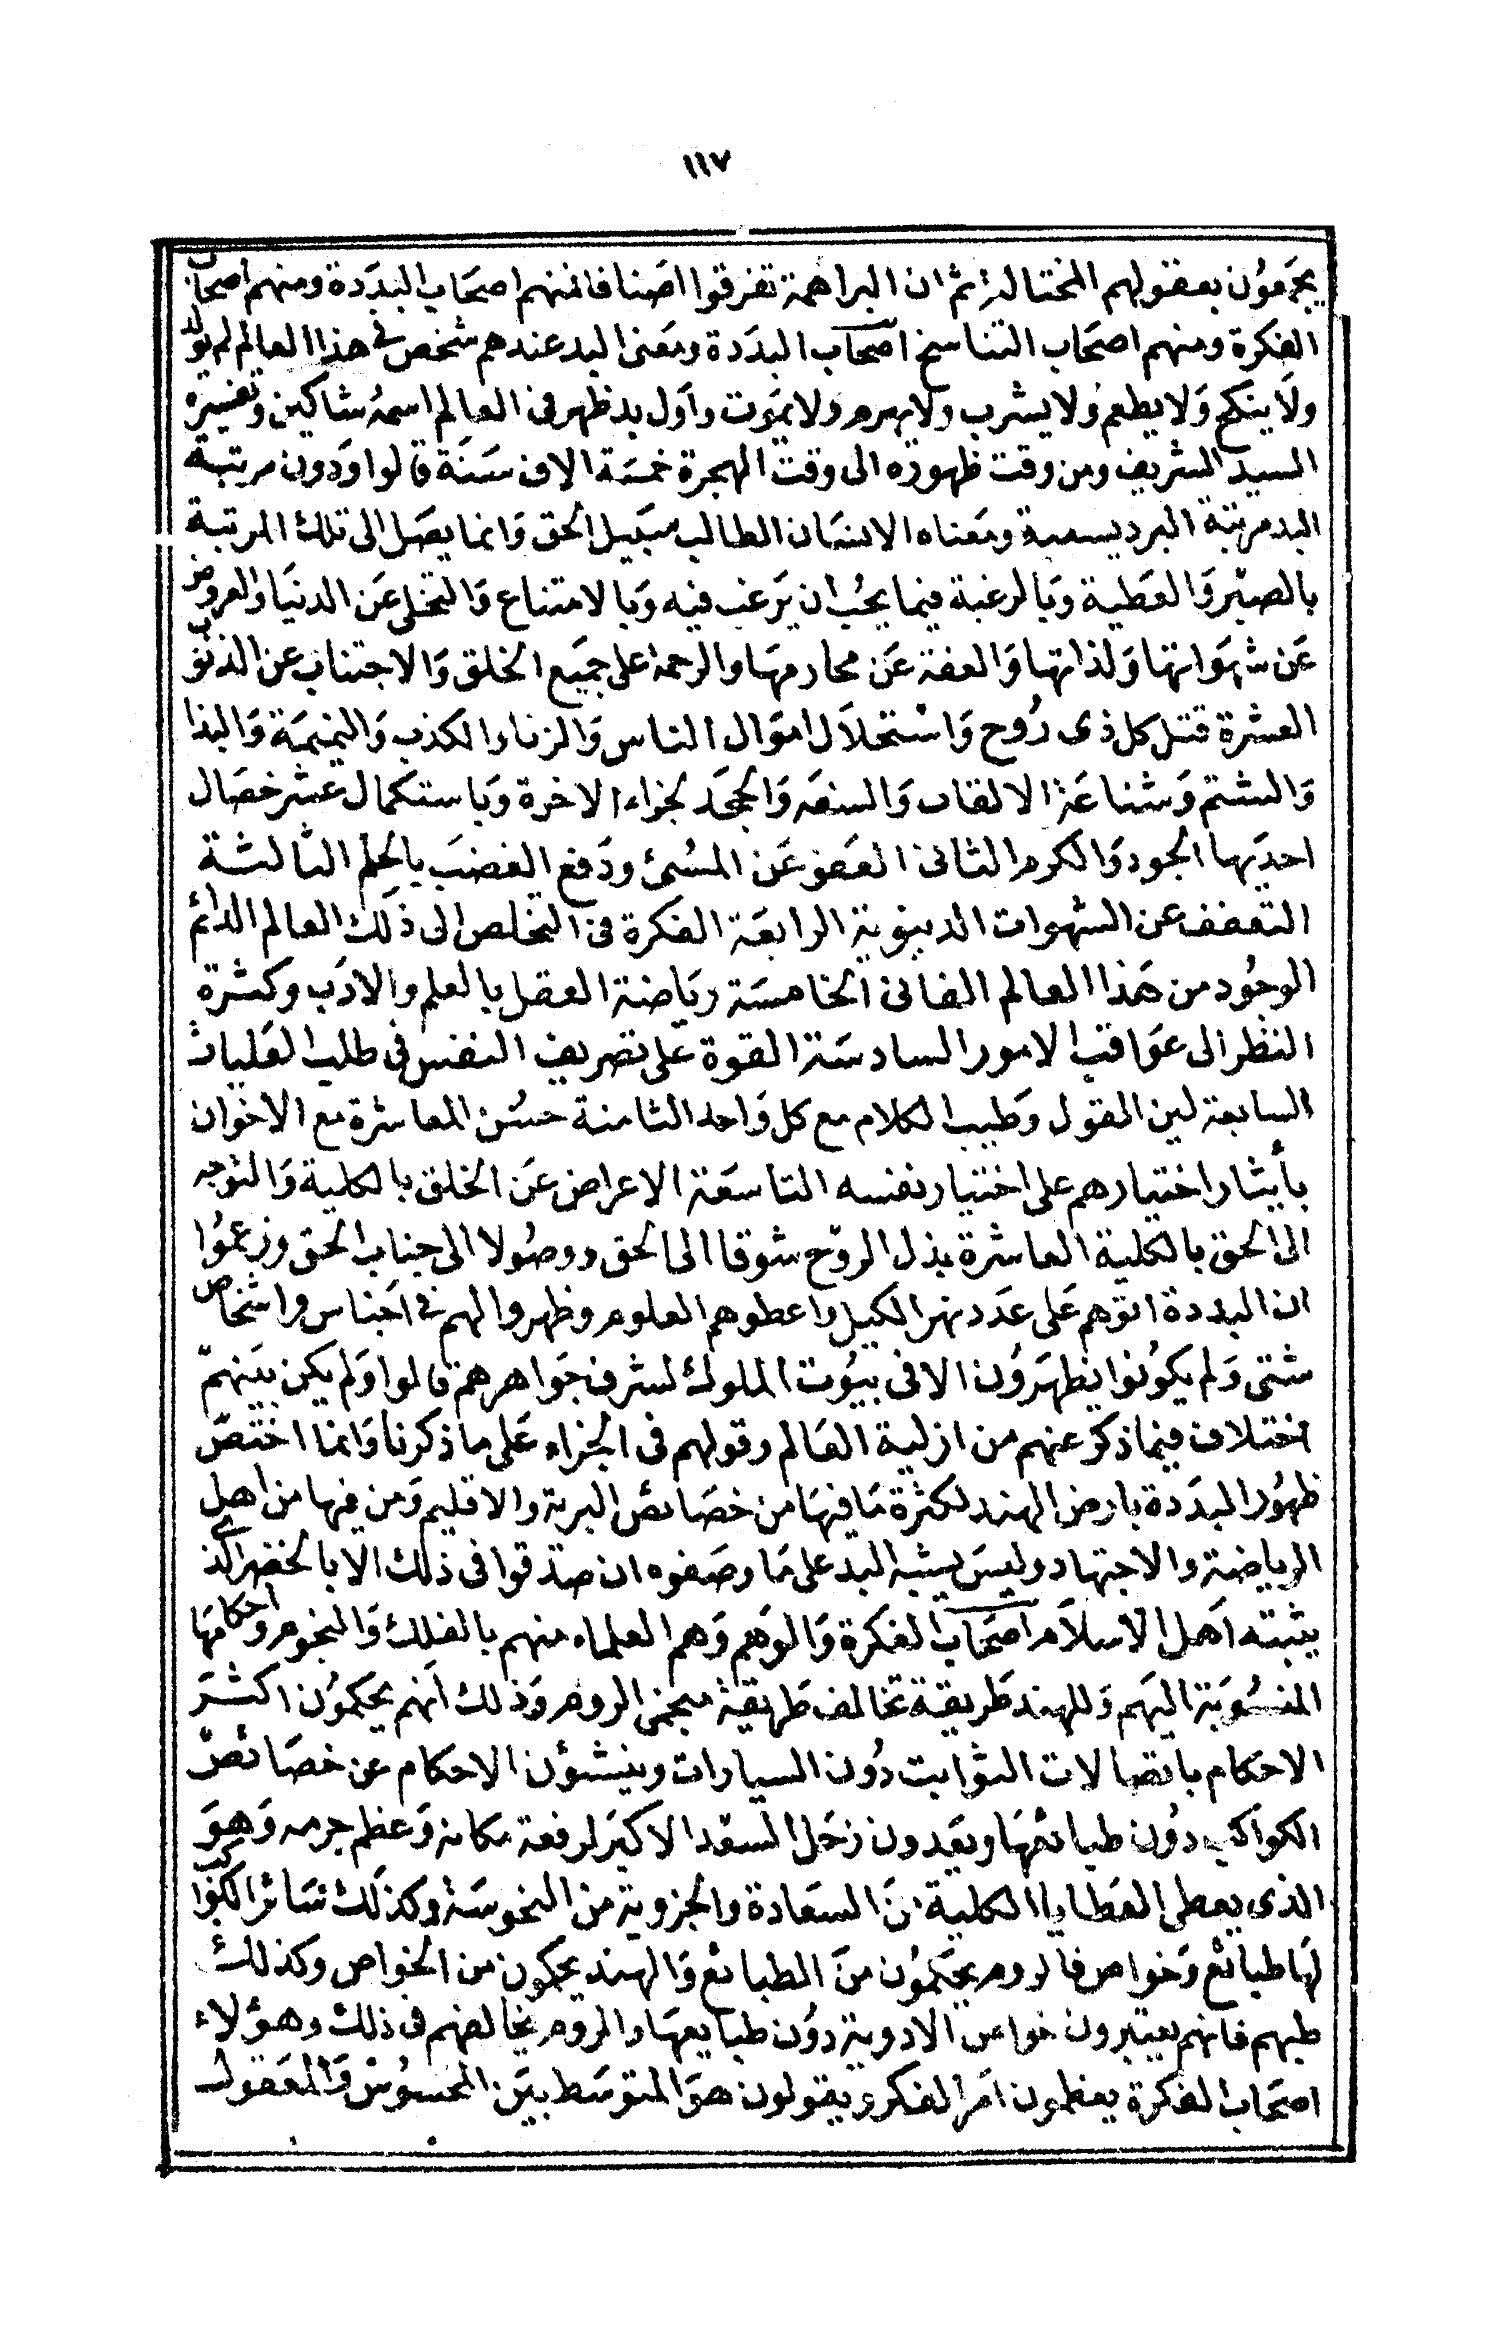 ١١٧
يجزعون بعقولهم المختالة ثم ان البراهمة تفرقوا اصنافا فمنهم اصحاب البددة ومنهم اصحاب
الفكرة ومنهم اصحاب التناسخ اصحاب البددة ومعنى البد عندهم شخص في هذا العالم لم يولد
ولا ينكح ولا يطعم ولا يشرب ولا يهرم ولا يموت واول بد ظهر في العالم اسمه شاكين وتفسيره
السيد الشريف ومن وقت ظهوره الى وقت الهجرة خمسة الاف سنة قالوا ودون مرتبة
البد مرتبة البرديسعية ومعناه الانسان الطالب سبيل الحق وانما يصل الى تلك المرتبة
بالصبر والعطية وبالرغبة فيما يجب ان يرغب فيه وبالامتناع والتخلى عن الدنيا والعروض
عن شهواتها ولذاتها والعفة عن محارمها والرحمة على جميع الخلق والاجتناب عن الذنوب
العشرة قتل كل ذى روح واستحلال اموال الناس والزنا والكذب والنميمة والبذا
والشتم وشناعة الالقاب والسفه والجحد لجزاء الاخرة وباستكمال عشر خصال
احديها الجود والكرم الثانى العفو عن المسئ ودفع الغضب بالحلم الثالثة
التعفف عن الشهوات الدنيوية الرابعة الفكرة فى التخلص الى ذلك العالم الدائم
الوجود من هذا العالم الفانى الخامسة رياضة العقل بالعلم والادب وكثرة
النظر الى عواقب الامور السادسة القوة على تصريف النفس فى طلب العليات
السابعة لين القول وطيب الكلام مع كل واحد الثامنة حسن المعاشرة مع الاخوان
بأيثار اختيارهم على اختيار نفسه التاسعة الاعراض عن الخلق بالكلية والتوجه
الى الحق بالكلية العاشرة بذل الروح شوقا الى الحق ووصولا الى جناب الحق وزعموا
ان البددة اتوهم على عدد نهر الكيل واعطوهم العلوم وظهروا لهم في اجناس واشخاص
شتى ولم يكونوا يظهرون الا فى بيوت الملوك لشرف جواهرهم قالوا ولم يكن بينهم
اختلاف فيما ذكر عنهم من ازلية العالم وقولهم فى الجزاء على ما ذكرنا وانما اختص
ظهور البددة بارض الهند لكثرة ما فيها من خصائص البرية والاقليم ومن فيها من اهل
الرياضة والاجتهاد وليس يشبه البد على ما وصفوه ان صدقوا فى ذلك الا بالخضر الذى
يثبته اهل الاسلام اصحاب الفكرة والوهم وهم العلماء منهم بالفلك والنجوم واحكامها
المنسوبة اليهم وللهند طريقة تخالف طريقة منجمى الروم وذلك انهم يحكمون اكثر
الاحكام باتصالات الثوابت دون السيارات وينشئون الاحكام عن خصائص
الكواكب دون طبائعها ويعدون زحل السعد الاكبر لرفعة مكانه وعظم جرمه وهو
الذى يعطى العطايا الكلية من السعادة والجزوية من النحوسة وكذلك سائر الكواكب
لها طبائع وخواص فالروم يحكمون من الطبائع والهند يحكمون من الخواص وكذلك
طبهم فانهم يعتبرون خواص الادوية دون طبايعها والروم تخالفهم فى ذلك وهؤلاء
اصحاب الفكرة يعظمون امر الفكر ويقولون هو المتوسط بين المحسوس والمعقول